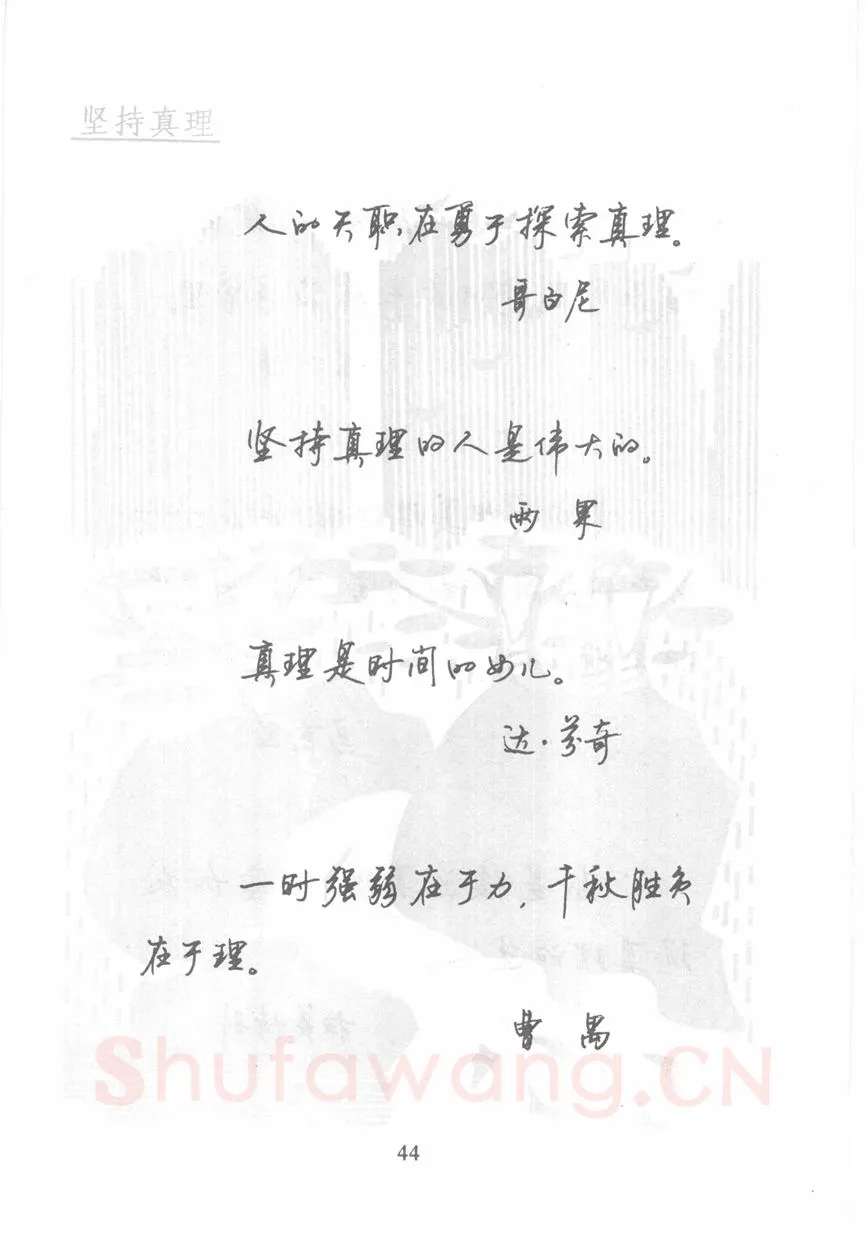 坚持真理
人的天职在勇于探索真理。
哥白尼
坚持真理的人是伟大的。
雨果
真理是时间的女儿。
达·芬奇
一时强弱在于力，千秋胜负
在于理。
曹禺
Shufawang.CN
44